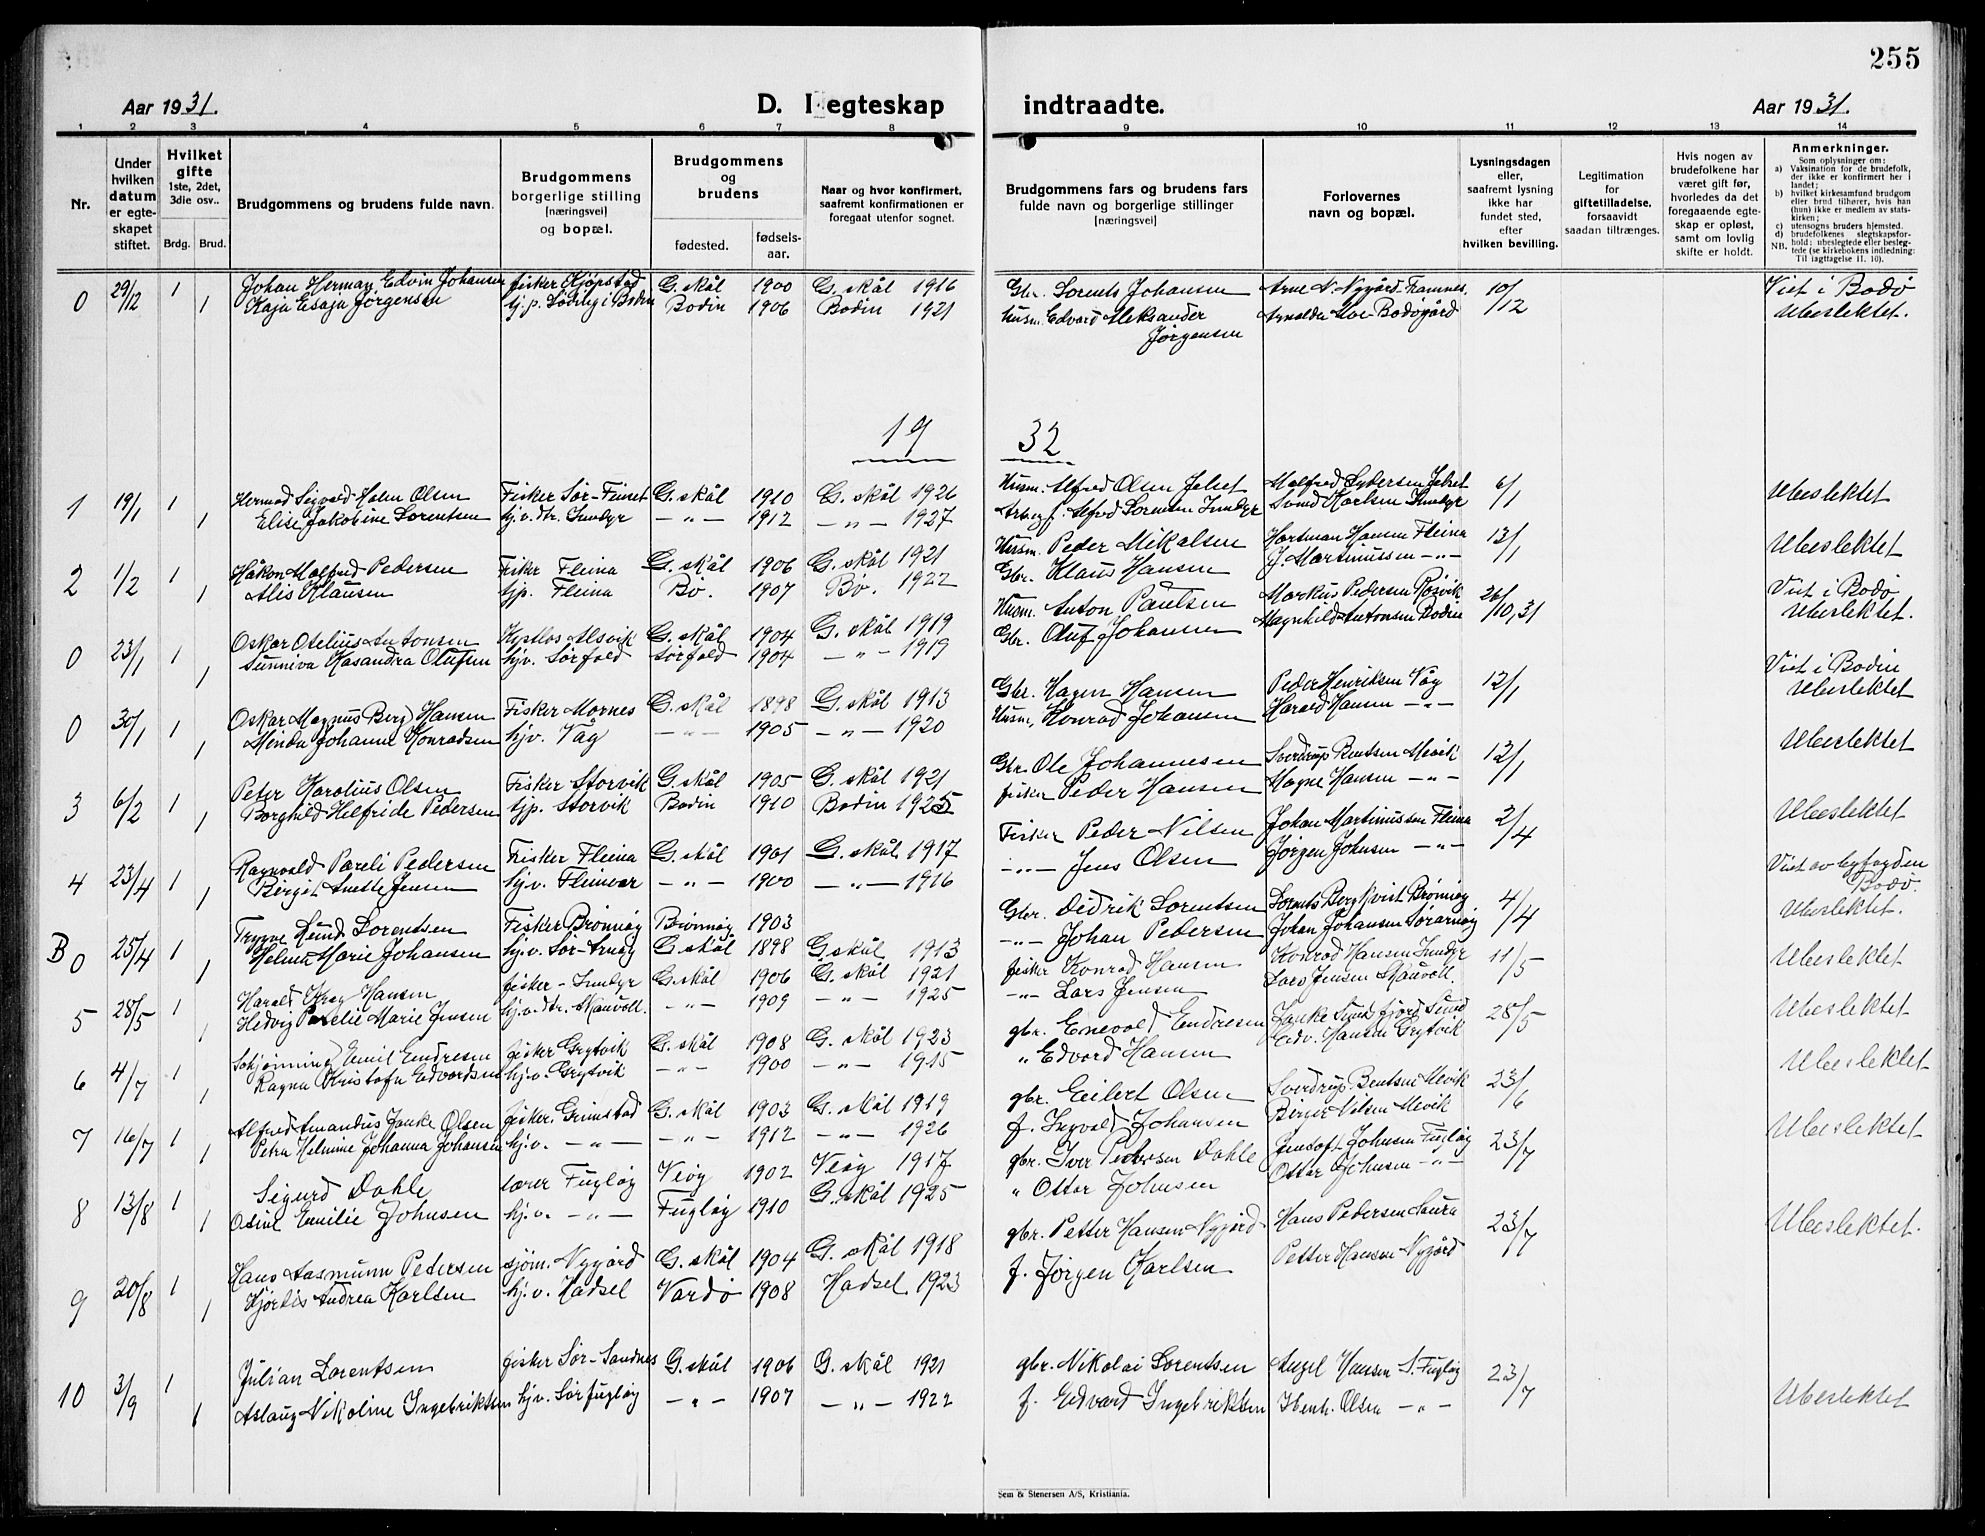 255
Aar 1931.
D. I egteskap
indtraadte.
Aar 1931.
1 2 3 4 5 6 7 8 9 10 11 12 13 14
Nr.
Under hvilken datum er egteskapet stiftet.
Hvilket gifte
1ste, 2det, 3die osv..
Brdg. Brud.
Brudgommens og brudens fulde navn.
Brudgommens borgerlige stilling (næringsvei) og bopæl.
Brudgommens og brudens
fødested. fødselsaar.
Naar og hvor konfirmert, saafremt konfirmationen er foregaat utenfor sognet.
Brudgommens fars og brudens fars fulde navn og borgerlige stillinger (næringsvei)
Forlovernes navn og bopæl.
Lysningsdagen eller, saafremt lysning ikke har fundet sted, efter hvilken bevilling.
Legitimation for giftetilladelse, forsaavidt saadan tiltrænges.
Hvis nogen av brudefolkene har været gift før, hvorledes da det foregaaende egteskap er opløst, samt om lovlig skifte er holdt.
Anmerkninger.
Som oplysninger om:
a) Vaksination for de brudefolk, der ikke er konfirmert her i landet;
b) hvilket kirkesamfund brudgom eller brud tilhører, hvis han (hun) ikke er medlem av statskirken;
c) utensogns bruders hjemsted.
d) brudefolkenes slegtskapsforhold: ubeslegtede eller beslegtede (se kirkebokens indledning:
NB. Til iagttagelse II. 10).
0 29/12 1 Johan Herman Edvin Johansen fisker Kjøpstad G. skål 1900 G. skål 1916 Gbr. Lorents Johansen Arne N. Nygård Framnes 10/12 Viet i Bodø
1 Kaja Esaja Jørgensen Bodin 1906 Bodin 1921 husm. Edvard Aleksander Jørgensen Bodøgård Ubeslektet.
19 32
1 19/1 1 Hermod Sigvald Holm Olsen Fisker Sør-Finset G. skål 1910 G. skål 1926 Husm. Alfred Olsen 6/1 Ubeslektet
1 Elise Jakobine Lorentsen hj.v. dtr. Inndyr —"— 1912 —"— 1927 Alfred Lorentsen Inndyr Svend Karlsen Inndyr
2 1/2 1 Håkon Malfred Pedersen Fisker Fleina G. skål 1906 G. skål 1921 Husm. Peder Mikalsen Hartman Hansen Fleina 13/1 Ubeslektet
1 Alis Klausen tjp. Fleina Bø. 1907 Bø. 1922 Gbr. Klaus Hansen J. Martinussen —"—
0 23/1 1 Oskar Otelius Antonsen Alsvik G. skål 1904 G. skål 1919 Husm. Anton Paulsen Markus Pedersen Røsvik 26/10,31 Viet i Bodø
1 Sunniva Kasandra Olufsen hjv. Sørfold Sørfold 1904 —"— 1919 Gbr. Oluf Johansen Magnhild Antonsen Bodin Ubeslektet.
0 30/1 1 Oskar Magnus Berg Hansen Fisker Mornes G. skål 1898 G. skål 1913 Gbr. Hagen Hansen Peder Henriksen Våg 12/1 Viet i Bodin
1 Minda Johanne Konradsen hjv. Våg —"— 1905 —"— 1920 Husm. Konrad Johansen Harald Hansen —"— Ubeslektet
3 6/2 1 Peter Karolius Olsen Fisker Storvik G. skål 1905 G. skål 1921 Gbr. Ole Johannesen Sverdrup Bentsen Mevik 13/1 Ubeslektet
1 Borghild Helfride Pedersen tjp. Storvik Bodin 1910 Bodin 1925 fisker Peder Hansen Magne Hansen —"—
4 23/4 1 Ragnvald Pareli Pedersen Fisker Fleina G. skål 1901 G. skål 1917 Fisker Peder Nilsen Johan Martinussen Fleina 2/4 Ubeslektet
1 Birgit Anette Jensen hj.v. Fleinvær —"— 1900 —"— 1916 —"— Jens Olsen Jørgen Johnsen —"—
B 0 25/4 1 Trygve Lund Lorentsen Fisker Brønnøy Brønnøy 1903 Gbr. Didrik Lorentsen Lorents Bergkvist Brønnøy 4/4 Viet av byfogden Bodø.
1 Marie Johansen hj.v. Sør-Arnøy G. skål 1898 G. skål 1913 —"— Johan Pedersen Johan Johansen Sørarnøy Ubeslektet.
5 28/5 1 Harald Krog Hansen fisker - Inndyr G. skål 1906 G. skål 1921 fisker Konrad Hansen Konrad Hansen Inndyr 11/5 Ubeslektet
1 Hedvig Parelie Marie Jensen hj.v. dtr. Skauvoll. —"— 1909 —"— 1925 —"— Lars Jensen Lars Jensen Skauvoll
6 4/7 1 Schjønning Emil Endresen fisker Grytvik G. skål 1908 G. skål 1923 gbr. Enevold Endresen 28/5 Ubeslektet
1 Ragna Kristofa Edvardsen hj.v. Grytvik —"— 1900 —"— 1915 " Edvard Hansen Edv. Hansen Grytvik
7 16/7 1 Alfred Amandus Janke Olsen fisker. Grimstad G. skål 1903 G. skål 1919 gbr. Eilert Olsen Sverdrup Bentsen Mevik 23/6 Ubeslektet
1 Petra Helmine Johanna Johansen hj.v. —"— —"— 1912 —"— 1926 f. Ingvald Johansen Birger Nilsen Mevik
8 13/8 1 Sigurd Dahle lærer Fugløy Veøy 1902 Veøy 1917 gbr. Iver Pedersen Dahle Jensoft Johnsen Fugløy 23/7 Ubeslektet
1 Odine Emilie Johnsen hj.v. —"— Fugløy 1910 G. skål 1925 " Ottar Johnsen Ottar Johnsen —"—
9 20/8 1 Hans Aasmunn Pedersen sjøm. Nygård G. skål 1904 G. skål 1918 gbr. Petter Hansen Nygjård Hans Pedersen Saura 23/7 Ubeslektet.
1 Hjørdis Andrea Karlsen hj.v. Hadsel Vardø 1908 Hadsel 1923 f. Jørgen Karlsen Petter Hansen Nygjård
10 3/9 1 Julian Lorentsen fisker Sør-Sandnes G. skål 1906 G. skål 1921 gbr. Nikolai Lorentsen Hansen S. Fugløy 23/7 Ubeslektet
1 Aslaug Nikoline Ingebriktsen hj.v. Sørfugløy —"— 1907 —"— 1922 f. Edvard Ingebriktsen Olsen —"—
Sem & Stenersen A/S, Kristiania.